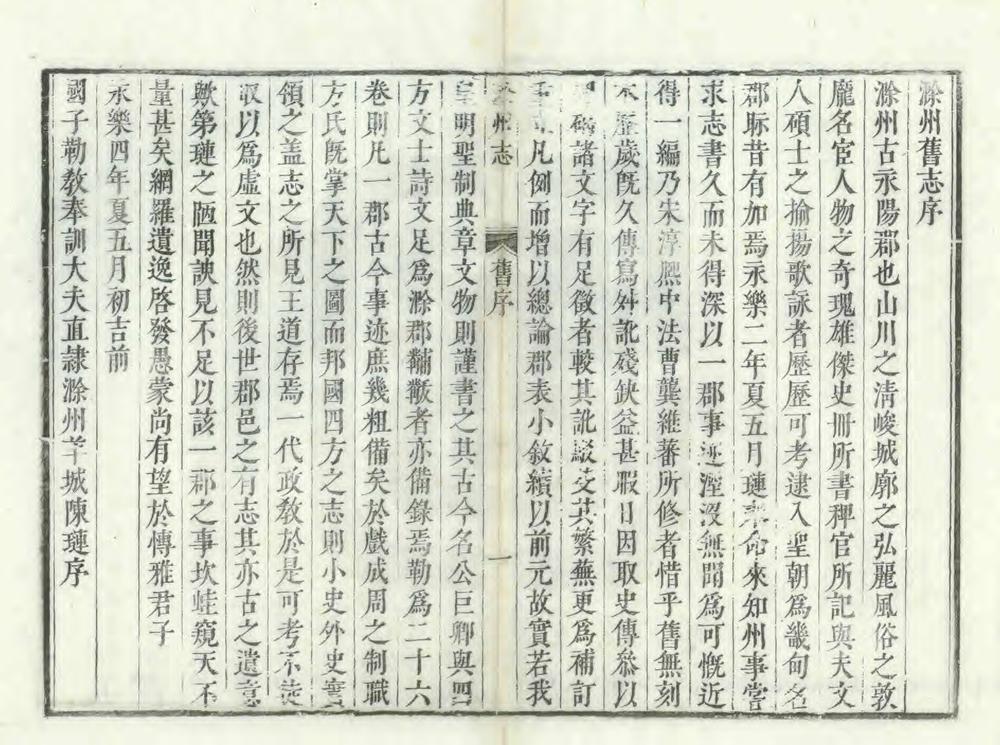 滁州舊志序
滁州古永陽郡也山川之清峻城廓之弘麗風俗之敦
龐名宦人物之奇瑰雄傑史冊所書稗官所記與夫文
人碩士之揄揚歌詠者歷歷可考逮入聖朝為畿甸名
郡眎昔有加焉永樂二年夏五月璉奉命來知州事嘗
求志書久而未得深以一郡事迹湮沒無聞為可慨近
得一編乃宋淳熙中法曹龔維蕃所修者惜乎舊無刻
本歷歲既久傳寫舛訛殘缺益甚暇日因取史傳叅以
碑諸文字有足徵者較其訛駁芟其繁蕪更為補訂
凡例而增以總論郡表小敘續以前元故實若我
州志
舊序
一
皇明聖制典章文物則謹書之其古今名公巨卿與四
方文士詩文足為滁郡黼黻者亦備錄焉勒為二十六
卷則凡一郡古今事迹庶幾粗備矣於戲成周之制職
方氏既掌天下之圖而邦國四方之志則小史外史實
領之蓋志之所見王道存焉一代政教於是可考不徒
取以為虛文也然則後世郡邑之有志其亦古之遺意
歟第璉之陋聞諛見不足以該一郡之事坎蛙窺天不
量甚矣網羅遺逸啓發愚蒙尚有望於博雅君子
永樂四年夏五月初吉前
國子助教奉訓大夫直隸滁州羊城陳璉序